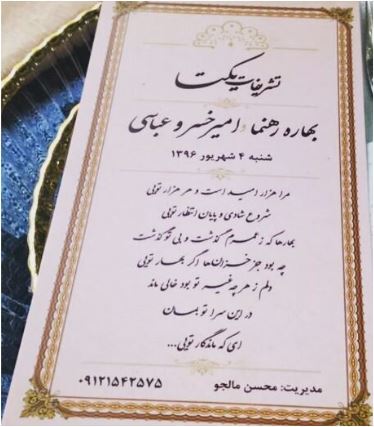 تشریفات یکتا
بهاره رهنما و امیرخسرو عباسی
شنبه ۴ شهریور ۱۳۹۶
مرا هزار امید است و هر هزار تویی
شروع شادی و پایان انتظار تویی
بهارها که ز عمرم گذشت و بی تو گذشت
چه بود جز خزان‌ها اگر بهار تویی
دلم ز هر چه غیر تو بود خالی ماند
در این سرا تو بمان
ای که ماندگار تویی...
مدیریت: محسن مالجو ۰۹۱۲۱۵۴۲۵۷۵